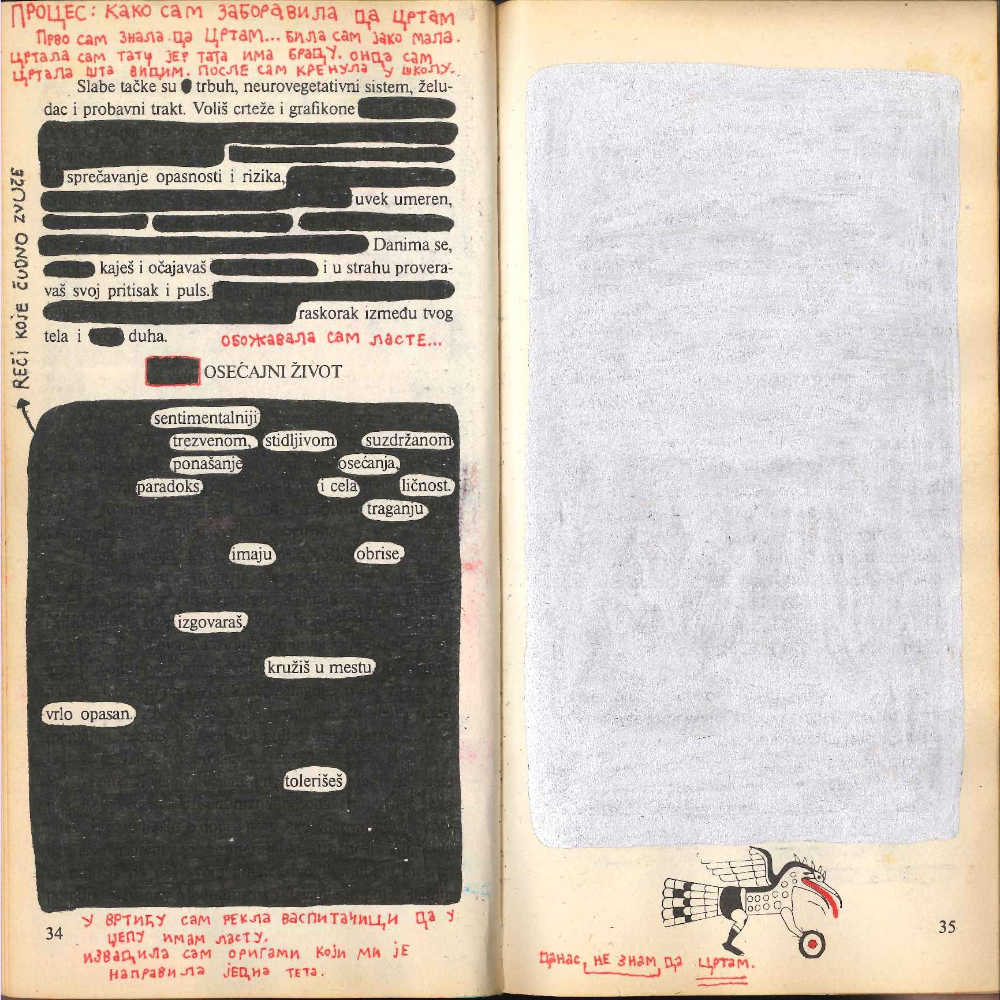 ПРОЦЕС: КАКО САМ ЗАБОРАВИЛА ДА ЦРТАМ
ПРВО САМ ЗНАЛА ДА ЦРТАМ... БИЛА САМ ЈАКО МАЛА.
ЦРТАЛА САМ ТАТУ ЈЕР ТАТА ИМА БРАДУ. ОНДА САМ
ЦРТАЛА ШТА ВИДИМ. ПОСЛЕ САМ КРЕНУЛА У ШКОЛУ.
Slabe tačke su trbuh, neurovegetativni sistem, želu-
dac i probavni trakt. Voliš crteže i grafikone
sprečavanje opasnosti i rizika,
uvek umeren,
Danima se,
kaješ i očajavaš i u strahu provera-
vaš svoj pritisak i puls.
raskorak između tvog
tela i duha.
ОБОЖАВАЛА САМ ЛАСТЕ...
REČI KOJE ČUDNO ZVUČE
OSEĆAJNI ŽIVOT
sentimentalniji
trezvenom, stidljivom suzdržanom
ponašanje osećanja,
paradoks i cela ličnost.
traganju
imaju obrise,
izgovaraš,
kružiš u mestu
vrlo opasan.
tolerišeš
У ВРТИЋУ САМ РЕКЛА ВАСПИТАЧИЦИ ДА У
ЏЕПУ ИМАМ ЛАСТУ.
ИЗВАДИЛА САМ ОРИГАМИ КОЈИ МИ ЈЕ
НАПРАВИЛА ЈЕДНА ТЕТА.
34
ДАНАС, НЕ ЗНАМ ДА ЦРТАМ.
35